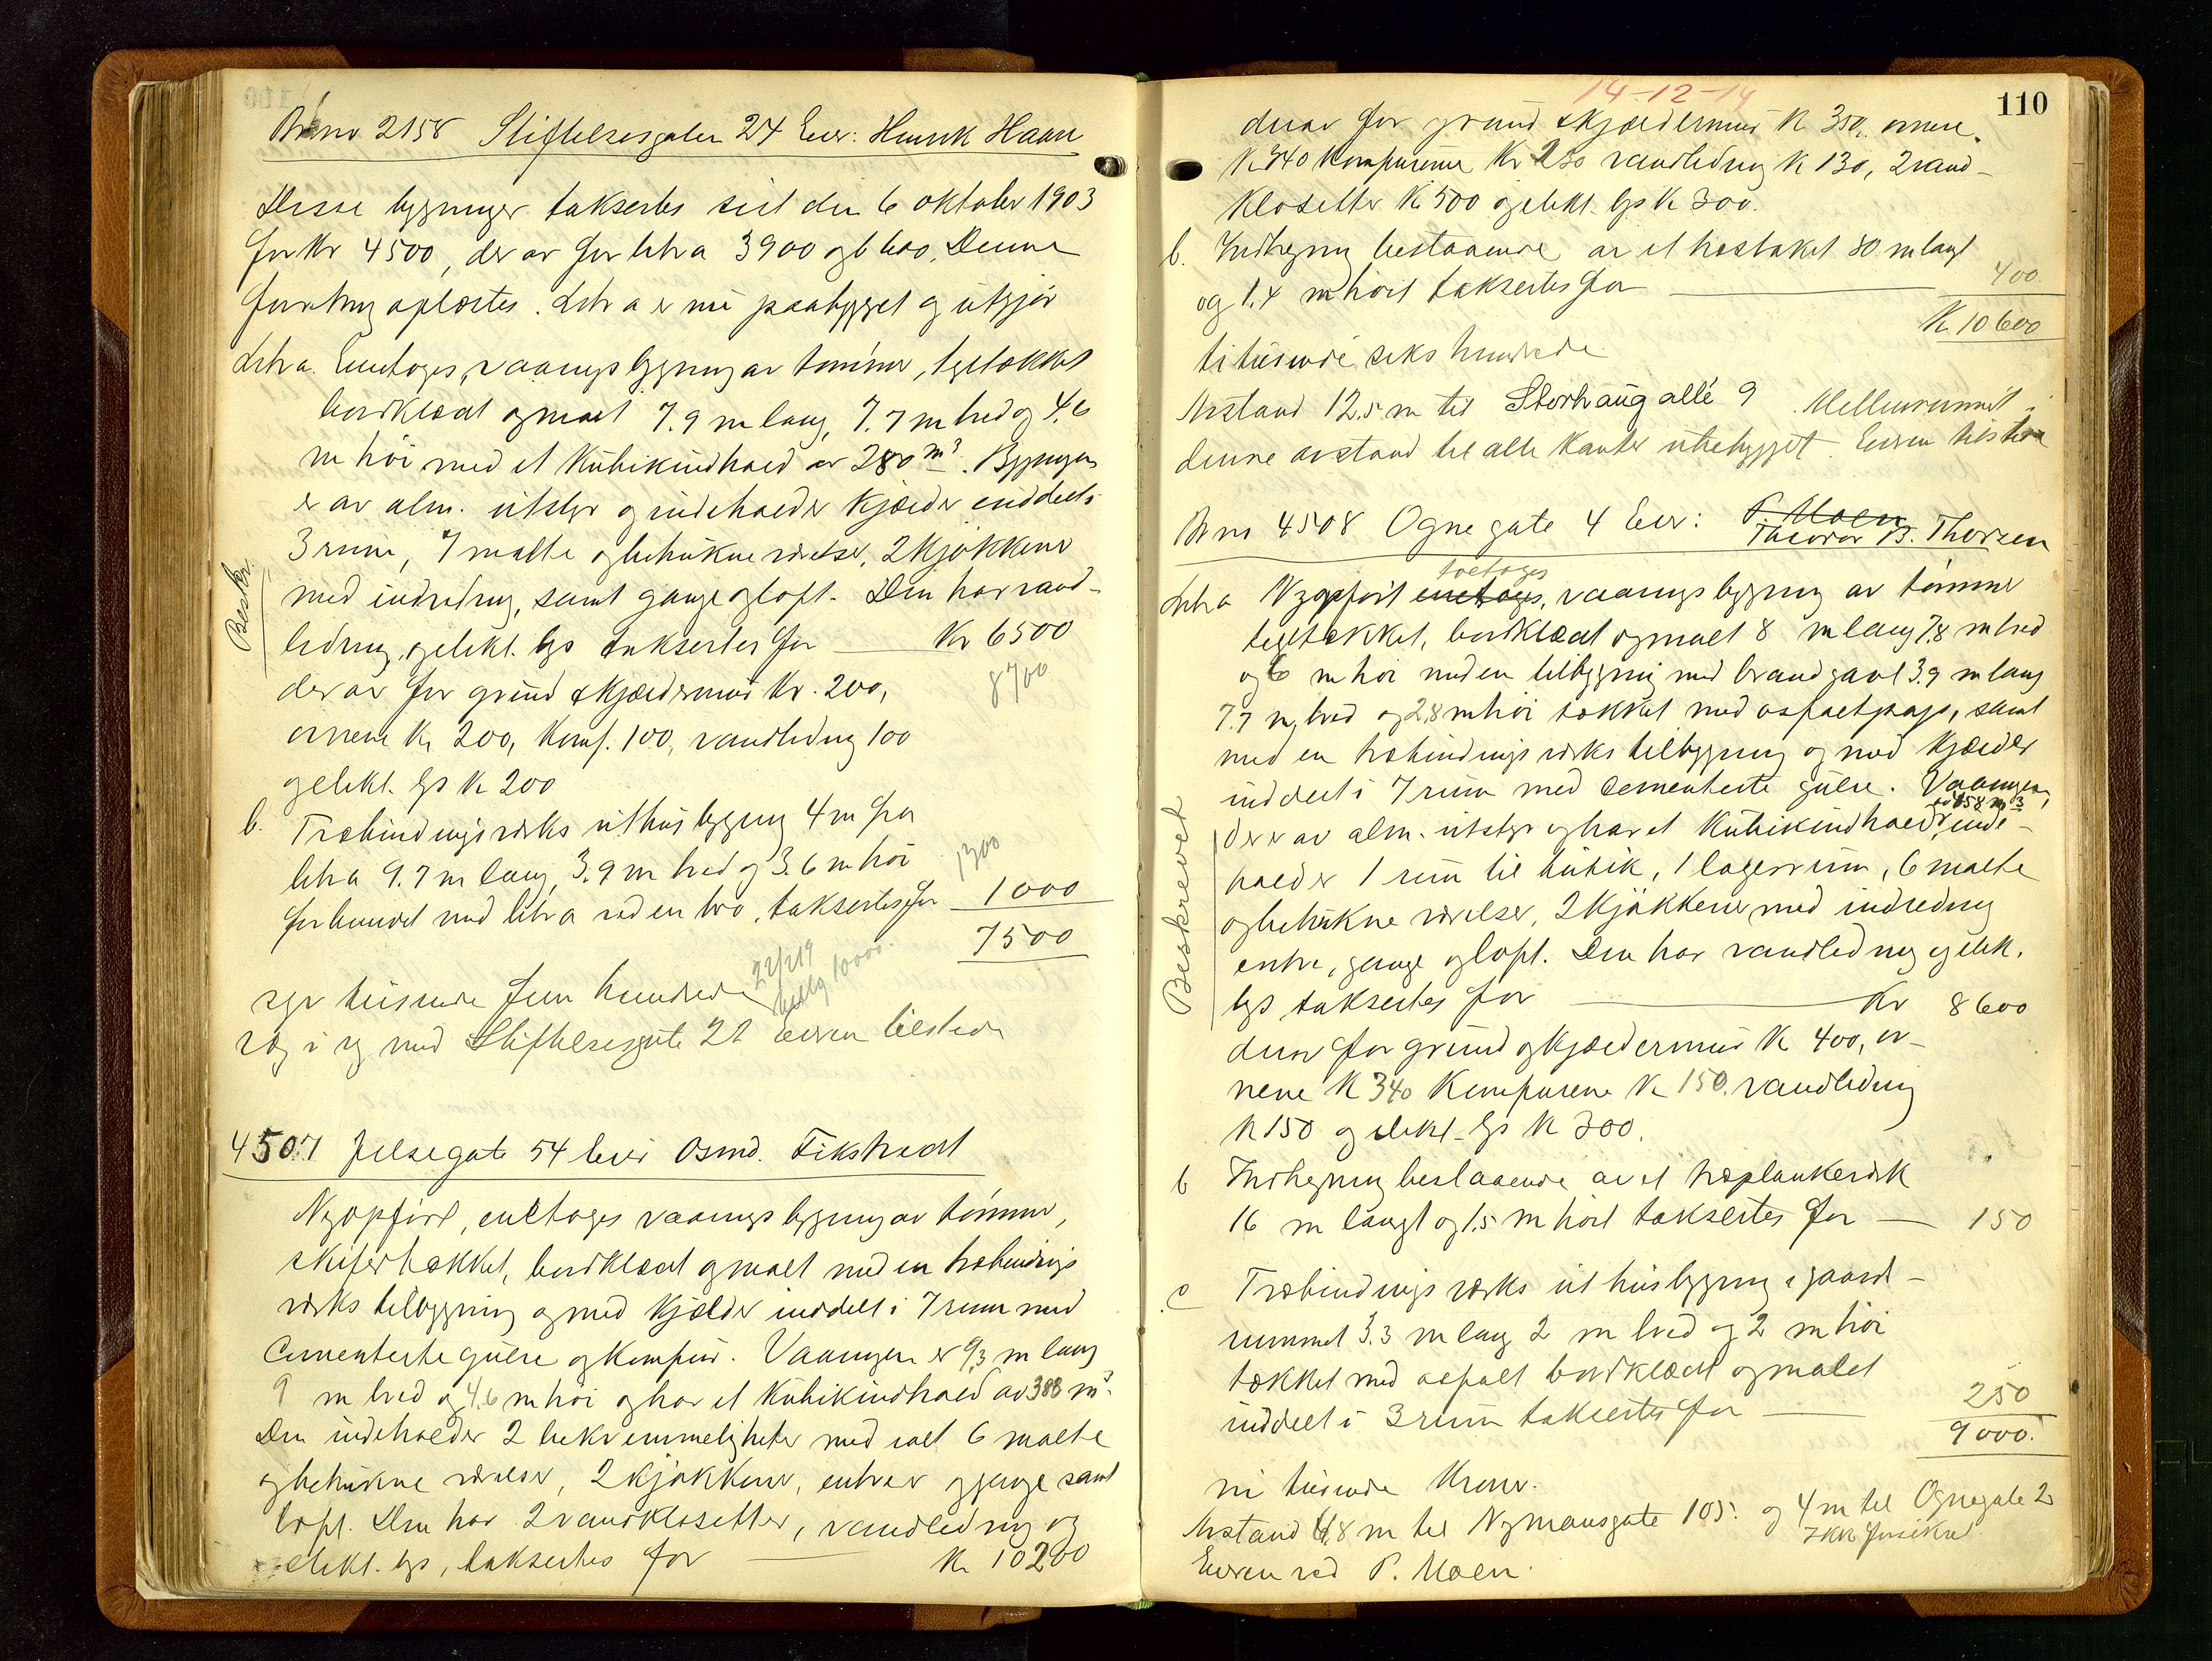 Br no 2158 Stiftelsesgaten 24 Eier: Henrik Haave
Disse bygninger taksertes sist den 6 oktober 1903
for Kr 4500, der av for litra 3900 og b 600. Denne
forretning oplæstes. Litr a er nu paabygget og utgjör
Litr a. Enetages, vaaningsbygning av tømmer, tegltækket
bordklædt og malt 7.9 m lang, 7.7 m bred og 4,6
m høi med et kubikindhold av 280 m³. Bygningen
er av alm. utstyr og indeholder kjælder inddelt i
3 rum, 7 malte og betrukne værelser, 2 kjøkkener
med indredning, samt gange og loft. Den har vand-
Beskr.
ledning og elekt. lys taksertes for Kr 6500
8700
derav for grund & kjældermur Kr. 200,
ovnene Kr 200, Komf. 100, vandledning 100
og elekt. lys Kr 200
b. Træbindingsværks uthusbygning 4 m fra
litr a 9.7 m lang, 3.9 m bred og 3.6 m høi
1300
forbundet med litr a ved en bro, taksertes for 1000
7500
syv tusinde fem hundrede
22/2 19
10000
Væg i væg med Stiftelsesgate 22 Eieren tilstede
4507 Jelsegate 54 Eier Osmd. Tikstvedt
Nyopført, enetages vaaningsbygning av tømmer,
skifertækket, bordklædt og malt med en træbindings
værks tilbygning og med kjælder inddelt i 7 rum med
Cementerte gulve og komfur. Vaaningen er 9,3 m lang
9 m bred og 4,6 m høi og har et kubikindhold av 388 m³.
Den indeholder 2 bekvemmeligheter med ialt 6 malte
og betrukne værelser, 2 kjøkkener, entreer og gange samt
loft. Den har 2 vandklosetter, vandledning og
elekt. lys, taksertes for Kr 10200
14-12-14
110
derav for grund & kjældermur Kr 350, ovnene
Kr 340 Komfurene Kr 250 vandledning Kr 130, 2 vand-
klosetter Kr 500 og elekt. lys Kr 300.
b. Indhegning bestaaende av et træstaket 80 m langt
og 1.4 m høit taksertes for 400.
Kr 10600
ti tusinde seks hundrede
Avstand 12,5 m til Storhaug allé 9. Mellemrummet i
denne avstand til alle kanter ubebygget. Eieren tilstede
Br no 4508 Ognegate 4 Eier: P. Moen
Theodor B. Thorsen
toetages
Litr a Nyopført enetages, vaaningsbygning av tømmer
teglt​ækket, bordklædt og malt 8 m lang 7,8 m bred
og 6 m høi med en tilbygning med brandgavl 3.9 m lang
7.7 m bred og 2,8 m høi tækket med asfaltpap, samt
med en træbindingsværks tilbygning og med kjælder
inddelt i 7 rum med cementerte gulve. Vaaningen,
der er av alm. utstyr og har et kubikindhold, inde-
Beskrevet
holder 1 rum til butik, 1 lagerrum, 6 malte
og betrukne værelser, 2 kjøkkener med indredning
entre, gange og loft. Den har vandledning og elek.
lys taksertes for Kr 8600
derav for grund og kjældermur Kr 400, ov-
nene Kr 340 Komfurene Kr 150. vandledning
Kr 150 og elekt. lys Kr 300.
b Indhegning bestaaende av et træplankeværk
16 m langt og 1.5 m høit taksertes for 150
c Træbindingsværks uthusbygning i gaards-
rummet 3.3 m lang 2 m bred og 2 m høi
tækket med asfalt bordklædt og malet
inddelt i 3 rum taksertes for 250
9000.
ni tusinde Kroner.
Avstand 6,8 m til Nymansgate 105. og 4 m til Ognegate 2
Eieren ved P. Moen.